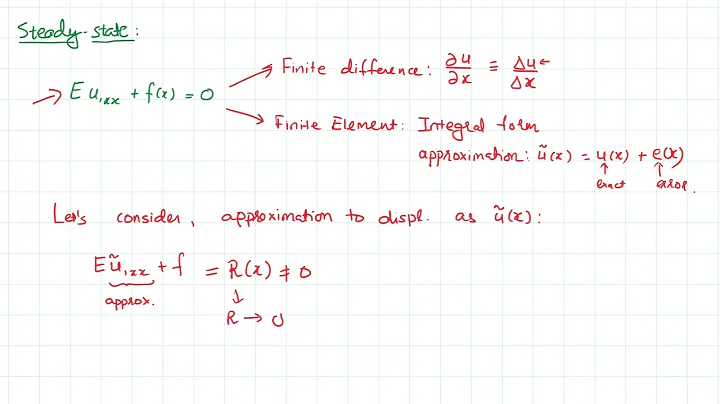 Steady-state:
E u,xx + f(x) = 0
Finite difference: ∂u/∂x ≡ Δu/Δx
Finite Element: Integral form
approximation: ũ(x) = u(x) + e(x)
exact error.
Let's consider, approximation to displ. as ũ(x):
E ũ,xx + f = R(x) ≠ 0
approx.
R → 0